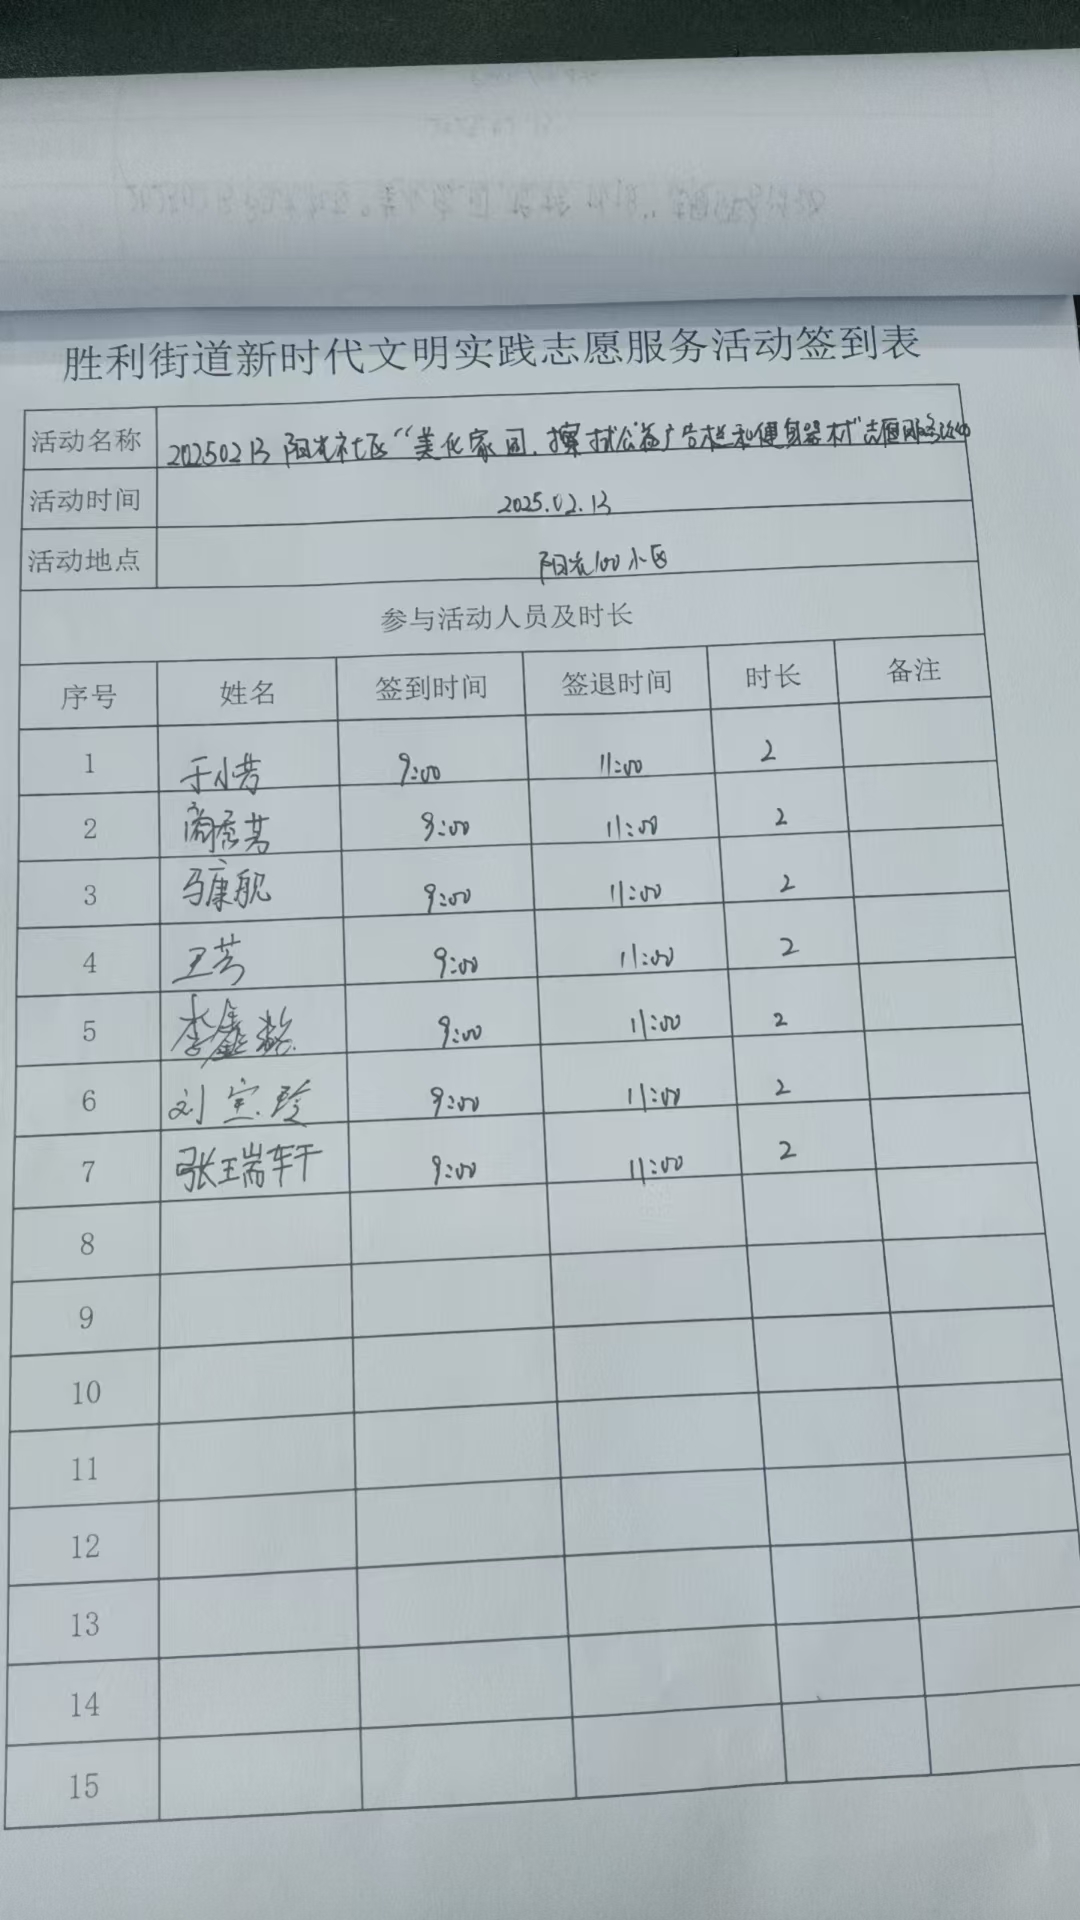 胜利街道新时代文明实践志愿服务活动签到表
活动名称 20250213 阳光社区“美化家园、擦拭公益广告栏和健身器材”志愿服务活动
活动时间 2025.02.13
活动地点 阳光100小区
参与活动人员及时长
序号 姓名 签到时间 签退时间 时长 备注
1 于小芳 9:00 11:00 2
2 9:00 11:00 2
3 马康 9:00 11:00 2
4 王芳 9:00 11:00 2
5 李鑫 9:00 11:00 2
6 刘宝玲 9:00 11:00 2
7 张瑞轩 9:00 11:00 2
8
9
10
11
12
13
14
15